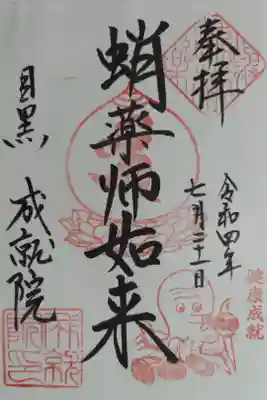 奉拝
令和四年
七月三十一日
蛸薬師如来
目黒 成就院
健康成就
成就院印